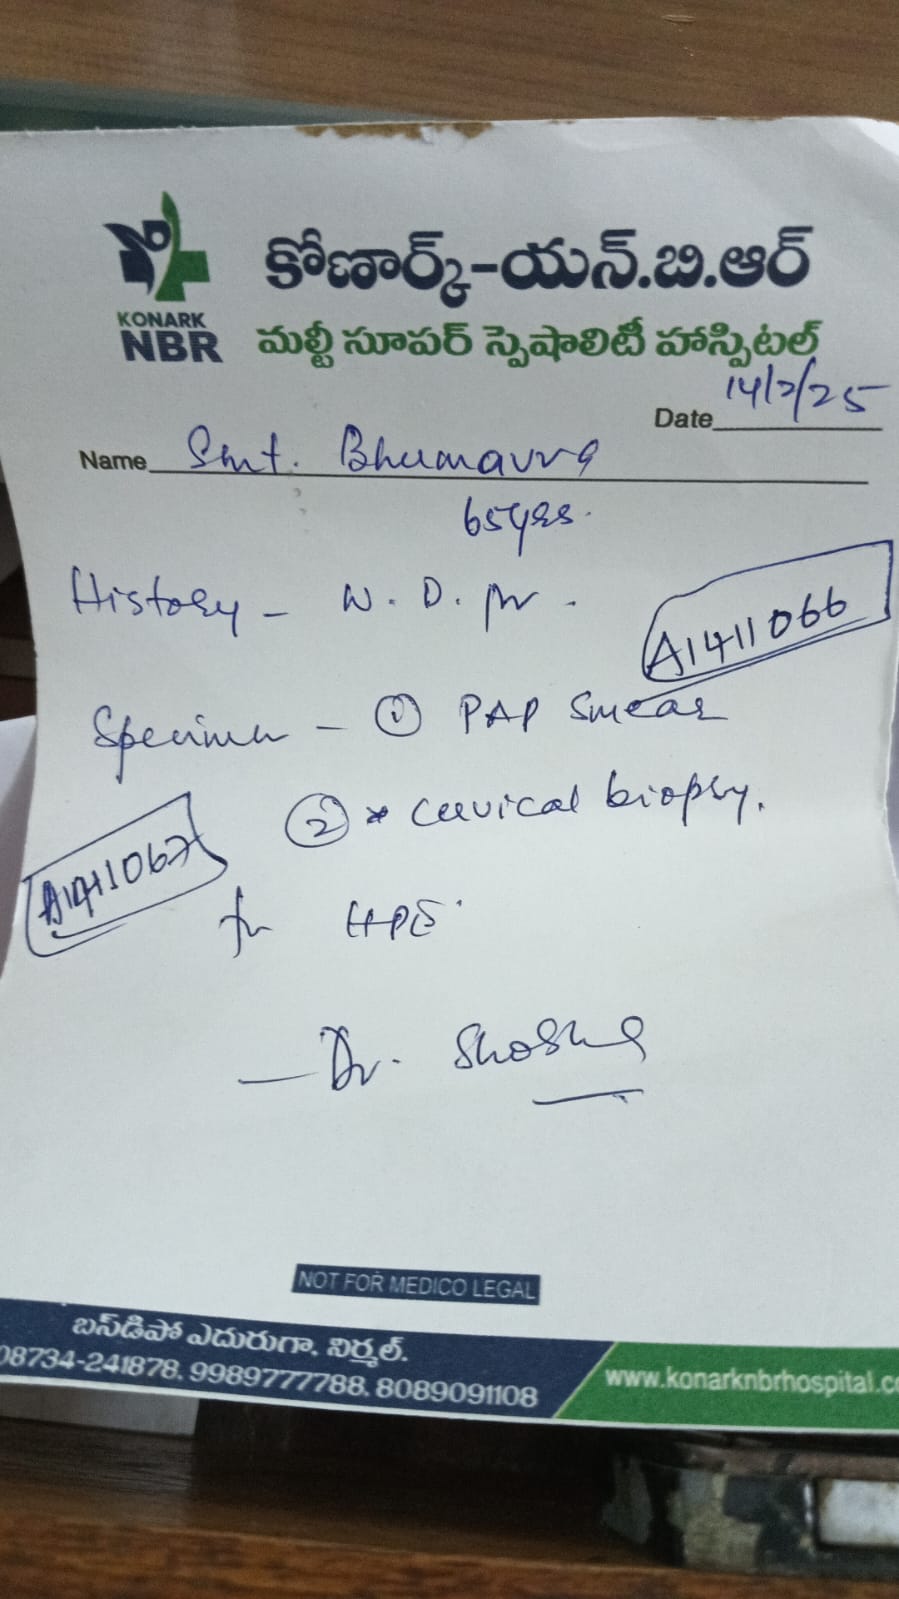 KONARK
NBR
కోణార్క్-యన్.బి.ఆర్
మల్టీ సూపర్ స్పెషాలిటీ హాస్పిటల్
Date 14/2/25
Name Smt. Bhumavva
65yrs.
History - W. D. pv.
A1411066
Specimen - ① PAP Smear
② * cervical biopsy.
A1411067
for HPE
- Dr.
NOT FOR MEDICO LEGAL
బస్‌డిపో ఎదురుగా, నిర్మల్.
08734-241878, 9989777788, 8089091108
www.konarknbrhospital.co